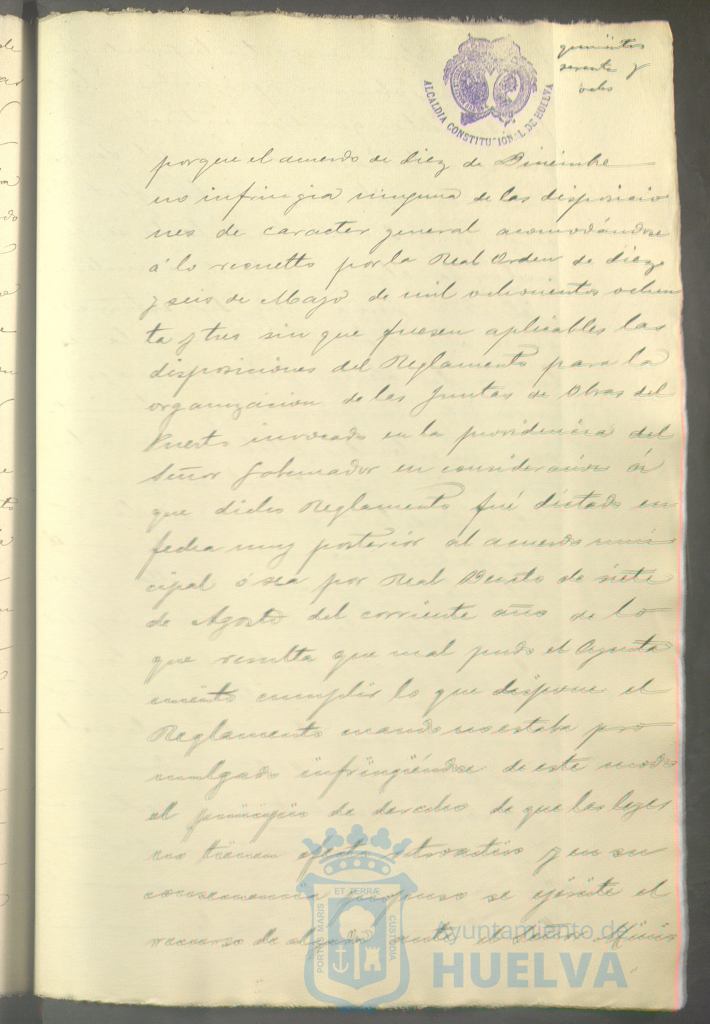 quinientos
sesenta y
ocho
ALCALDIA CONSTITUCIONAL DE HUELVA
porque el acuerdo de diez de Diciembre
no infringia ninguna de las disposicio
nes de caracter general acomodándose
á lo resuelto por la Real Orden de diez
y seis de Mayo de mil ochocientos ochen
ta y tres sin que fuesen aplicables las
disposiciones del Reglamento para la
organizacion de las Juntas de Obras del
Puerto invocado en la providencia del
Señor Gobernador en consideracion á
que dicho Reglamento fué dictado en
fecha muy posterior al acuerdo muni
cipal ó sea por Real Decreto de siete
de Agosto del corriente año de lo
que resulta que mal pudo el Ayunta
miento cumplir lo que dispone el
Reglamento cuando no estaba pro
mulgado infringiéndose de este modo
el principio de derecho de que las leyes
no tienen efecto retroactivo y en su
consecuencia propuso se ejercite el
recurso de alzada ante el Señor Minis
PORTUS MARIS ET TERRAE CUSTODIA
Ayuntamiento de
HUELVA